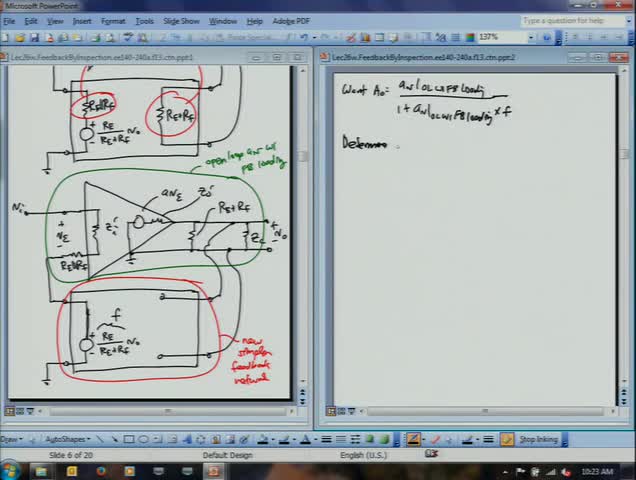 Microsoft PowerPoint
File Edit View Insert Format Tools Slide Show Window Help Adobe PDF
Type a question for help
137%
Lec26w.FeedbackByInspection.ee140-240a.f13.ctn.ppt:1
Lec26w.FeedbackByInspection.ee140-240a.f13.ctn.ppt:2
RE||RF
RE+RF
+
-
RE
RE+RF
No
open loop aN w/
FB loading
aNε
Zo'
Ni
+
Nε
-
Zi'
RE+RF
ZL
+
No
-
RE||RF
f
+
-
RE
RE+RF
No
new
simpler
feedback
network
Want Ao =
aN|OL w/ FB loading
1 + aN|OL w/ FB loading × f
Determine
Draw AutoShapes
Stop Inking
Slide 6 of 20
Default Design
English (U.S.)
10:23 AM